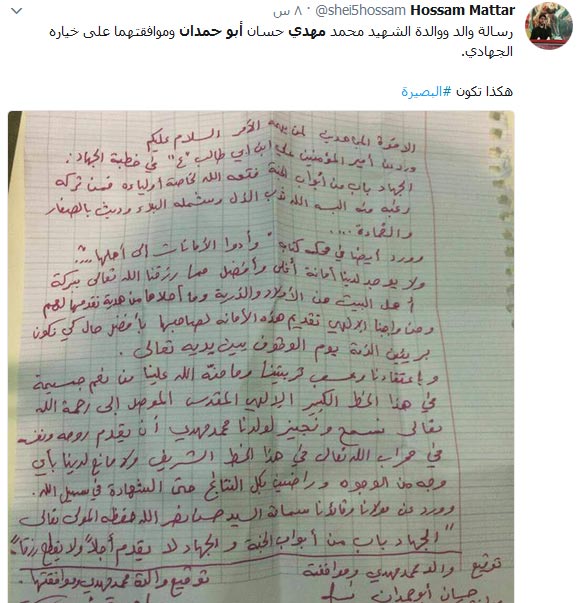 Hossam Mattar @shei5hossam · ٨ س
رسالة والد ووالدة الشهيد محمد مهدي حسان أبو حمدان وموافقتهما على خياره
الجهادي.
هكذا تكون #البصيرة
الاخوة المجاهدين لمن يهمه الأمر السلام عليكم
ورد عن أمير المؤمنين علي ابن أبي طالب "ع" في خطبة الجهاد:
الجهاد باب من أبواب الجنة فتحه الله لخاصة أولياءه فمن تركه
رغبه منه البسه الله ثوب الذل وشمله البلاء وديث بالصغار
والقماءة....
وورد أيضا في محكم كتابه "وأدوا الأمانات إلى أهلها...":
ولا يوجد لدينا أمانة أغلى وأفضل مما رزقنا الله تعالى ببركة
أهل البيت من الأولاد والذرية وما أحلاها من هدية نقدمها لهم
ومن واجبنا الإلهي تقديم هذه الأمانه لصاحبها بأفضل حال كي نكون
بريئين الذمة يوم الوقوف بين يديه تعالى.
وبإعتقادنا وحسب تربيتنا وما منّه الله علينا من نعم جسيمة
في هذا الخط الكبير الإلهي المقدس الموصل إلى رحمة الله
تعالى نسمح ونجيز لولدنا محمد مهدي أن يقدم روحه ونفسه
في محراب الله تعالى في هذا الخط الشريف ولا مانع لدينا بأي
وجه من الوجوه وراضين بكل النتائج حتى الشهادة في سبيل الله.
وورد عن مولانا وقائدنا سماحة السيد حسن نصر الله حفظه المولى تعالى
"الجهاد باب من أبواب الجنة والجهاد لا يقدم أجلاً ولا يقطع رزقاً".
توقيع والد محمد مهدي وموافقته
توقيع والدة محمد مهدي وموافقتها.
حسان أبو حمدان